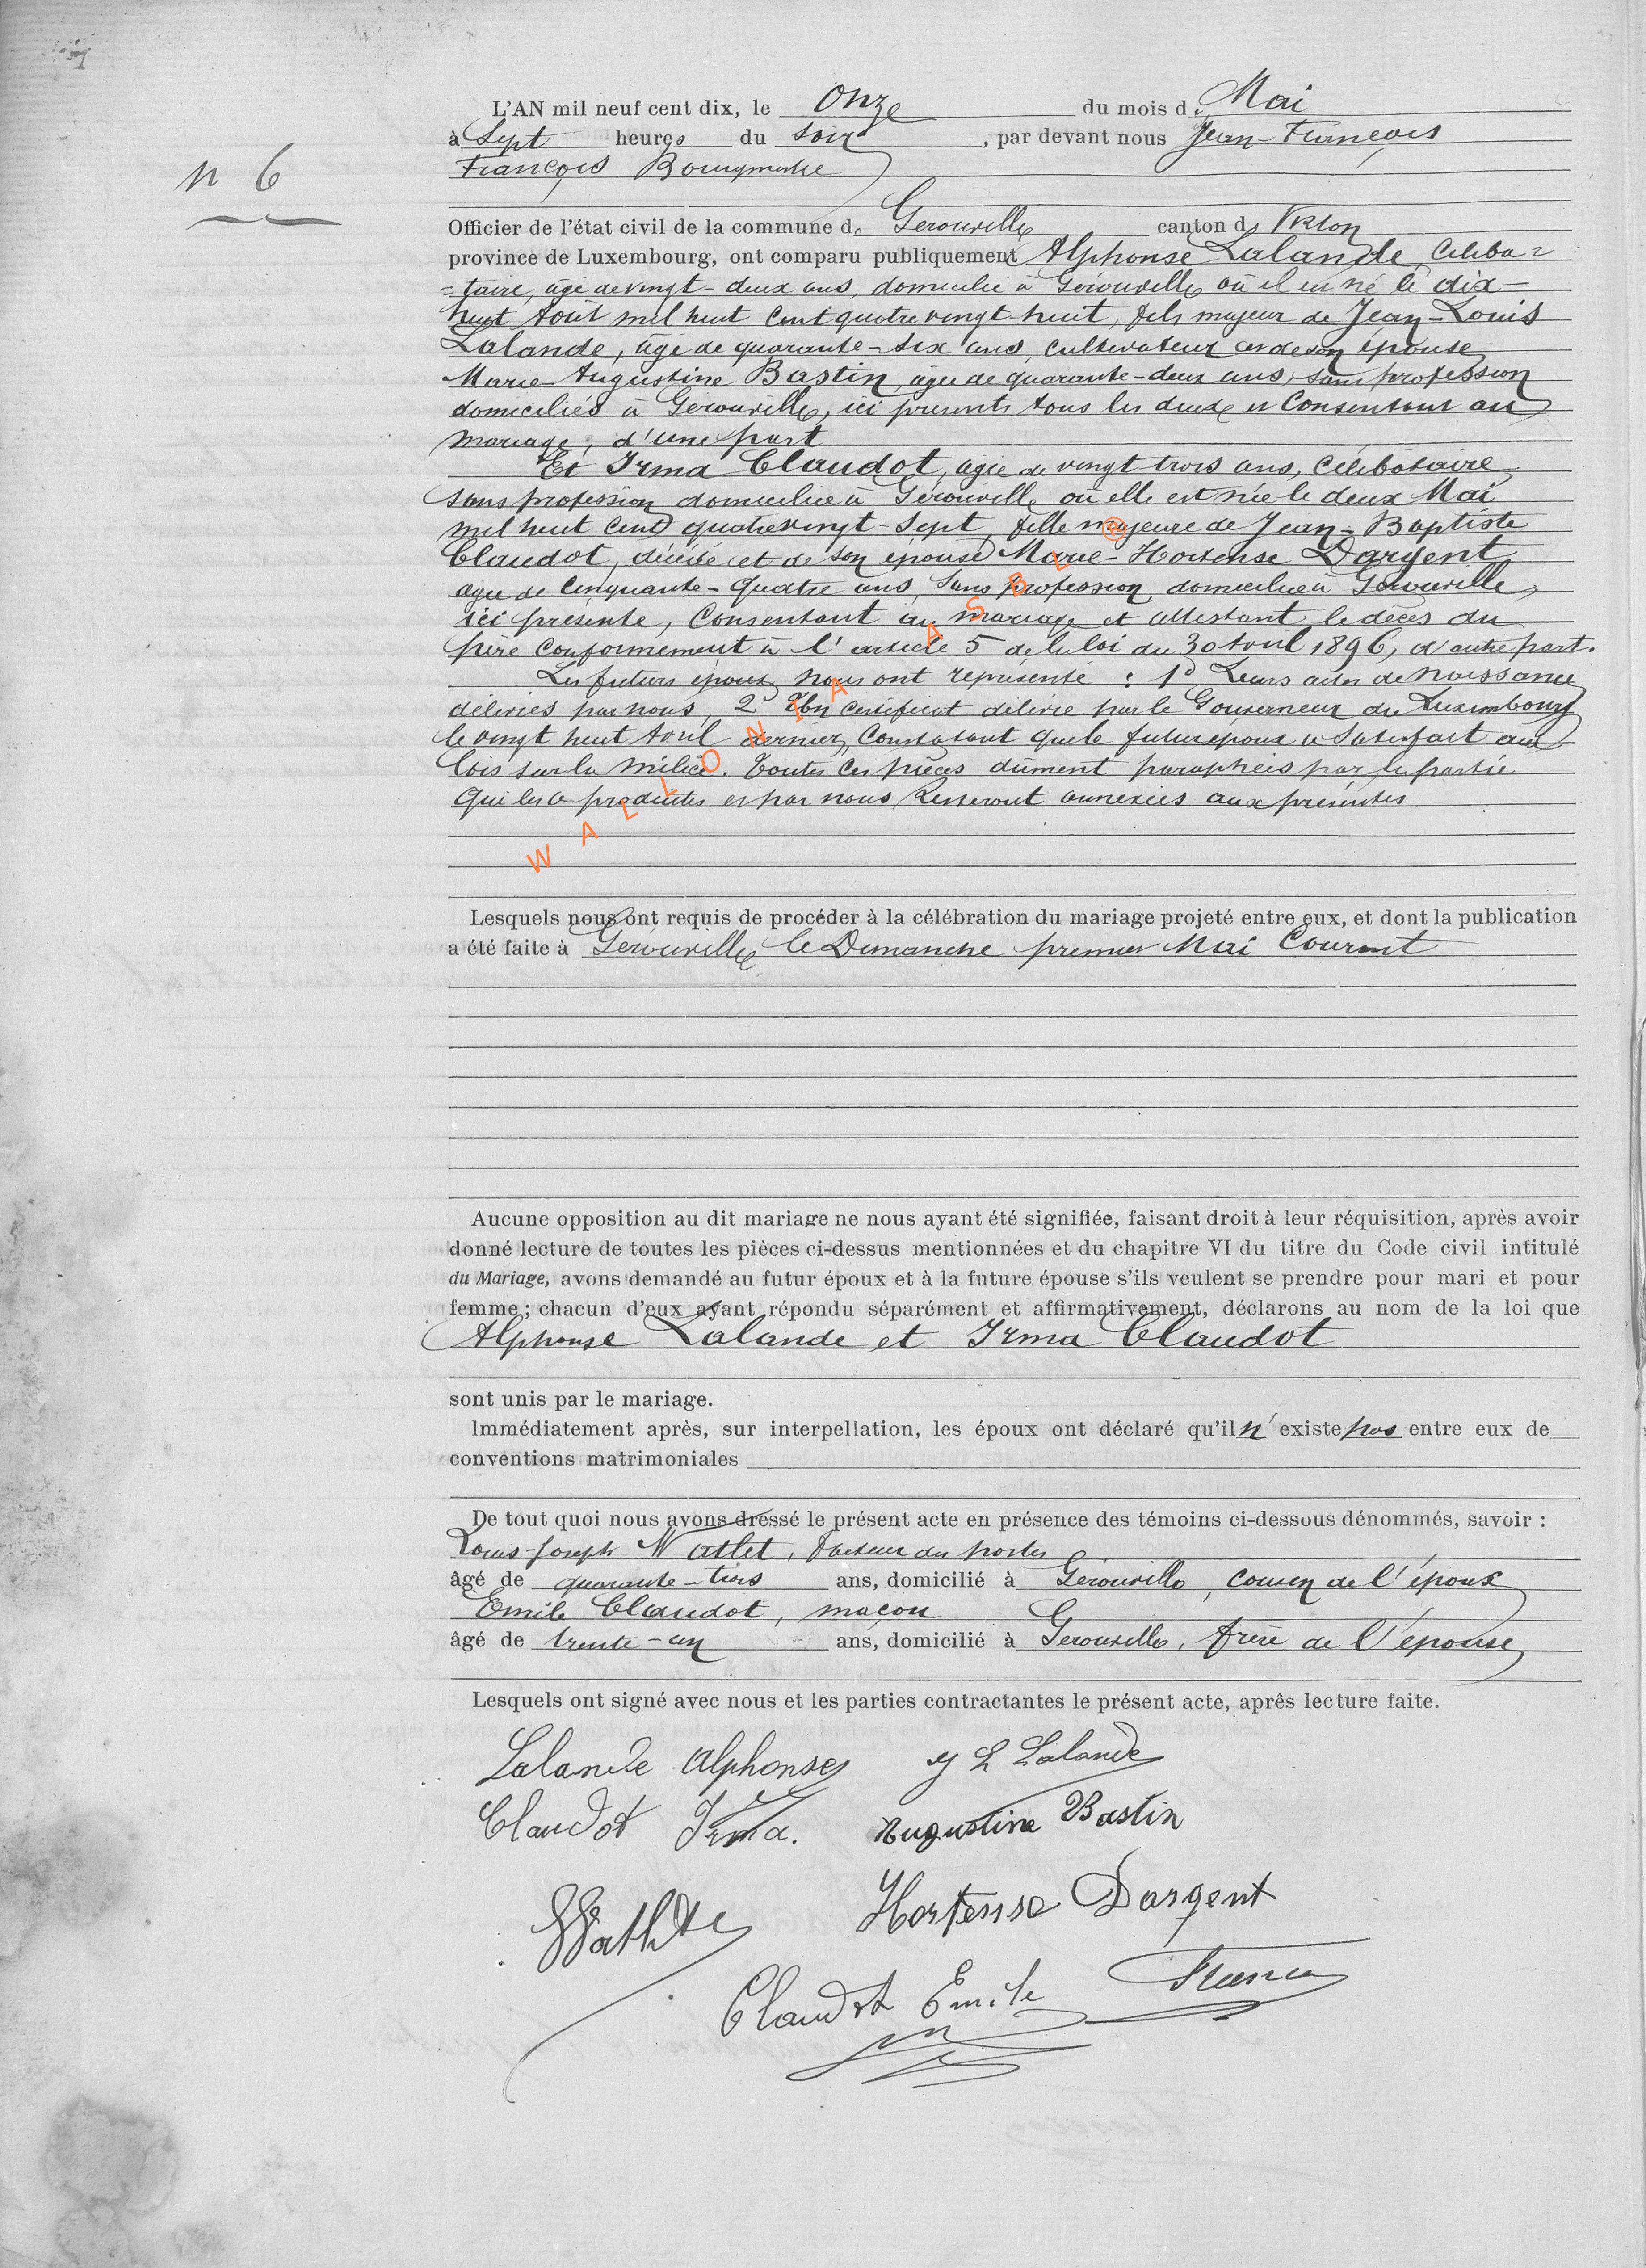 n 6
L'AN mil neuf cent dix, le Onze du mois de Mai
à Sept heures du soir, par devant nous Jean-François
François Bourgmestre
Officier de l'état civil de la commune de Gérouville canton de Virton
province de Luxembourg, ont comparu publiquement Alphonse Lalande, Céliba=
=taire, âgé de vingt-deux ans, domicilié à Gérouville où il est né le dix-
huit Août mil huit Cent quatre vingt-huit, fils majeur de Jean-Louis
Lalande, âgé de quarante-six ans, cultivateur et de son épouse
Marie-Augustine Bastin, âgée de quarante-deux ans, sans profession
domiciliés à Gérouville, ici présents tous les deux et Consentant au
mariage, d'une part
Et Irma Claudot, âgée de vingt trois ans, Célibataire
sans profession domiciliée à Gérouville où elle est née le deux Mai
mil huit Cent quatrevingt-Sept, fille majeure de Jean-Baptiste
Claudot, décédé et de son épouse Marie-Hortense Dargent
âgée de Cinquante-Quatre ans, Sans profession, domiciliée à Gérouville,
ici présente, Consentant au mariage et attestant le décès du
père Conformément à l'article 5 de la loi du 30 Avril 1896, d'autre part.
Les futurs époux nous ont représenté : 1° Leurs actes de naissance
délivrés par nous, 2° Un Certificat délivré par le Gouverneur du Luxembourg
le vingt huit Avril dernier, Constatant que le futur époux a Satisfait aux
lois sur la milice. Toutes Ces pièces dûment paraphées par la partie
Qui les a produites et par nous Resteront annexées aux présentes
WALLONIA ASBL ®
Lesquels nous ont requis de procéder à la célébration du mariage projeté entre eux, et dont la publication
a été faite à Gérouville le Dimanche premier Mai Courant
Aucune opposition au dit mariage ne nous ayant été signifiée, faisant droit à leur réquisition, après avoir
donné lecture de toutes les pièces ci-dessus mentionnées et du chapitre VI du titre du Code civil intitulé
du Mariage, avons demandé au futur époux et à la future épouse s'ils veulent se prendre pour mari et pour
femme ; chacun d'eux ayant répondu séparément et affirmativement, déclarons au nom de la loi que
Alphonse Lalande et Irma Claudot
sont unis par le mariage.
Immédiatement après, sur interpellation, les époux ont déclaré qu'il n'existe pas entre eux de
conventions matrimoniales
De tout quoi nous avons dressé le présent acte en présence des témoins ci-dessous dénommés, savoir :
Louis-Joseph Watlet, facteur des postes
âgé de quarante-trois ans, domicilié à Gérouville, cousin de l'époux
Emile Claudot, maçon
âgé de trente-un ans, domicilié à Gérouville, frère de l'épouse
Lesquels ont signé avec nous et les parties contractantes le présent acte, après lecture faite.
Lalande Alphonse J L Lalande
Claudot Irma. Augustine Bastin
Hortense Dargent
Claudot Emile